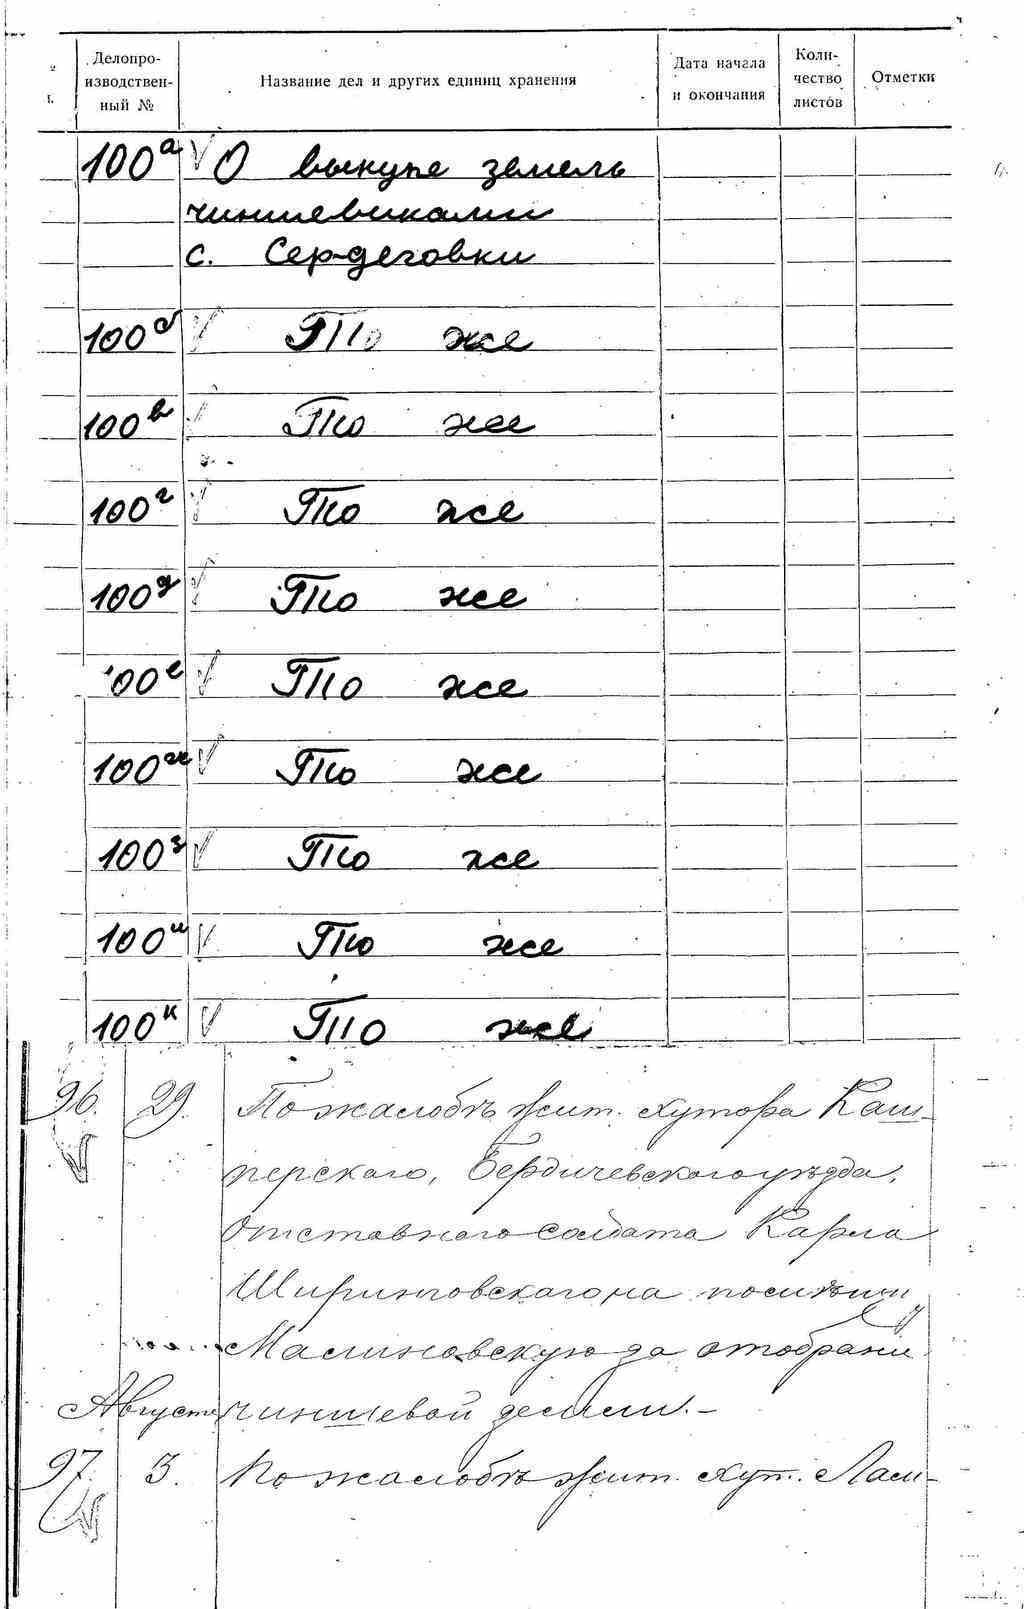 Делопро-
изводствен-
ный №
Название дел и других единиц хранения
Дата начала
и окончания
Коли-
чество
листов
Отметки
100а О выкупе земель
чиншевиками
с. Сердеговки
100б То же
100в То же
100г То же
100д То же
100е То же
100ж То же
100з То же
100и То же
100к То же
96. 29. По жалобѣ жит. хутора Каш-
перского, Бердичевского уѣзда,
отставного солдата Карла
на
Малиновскую за отобрани
Августа чиншевой земли. -
97. 3. По жалобѣ жит. хут.